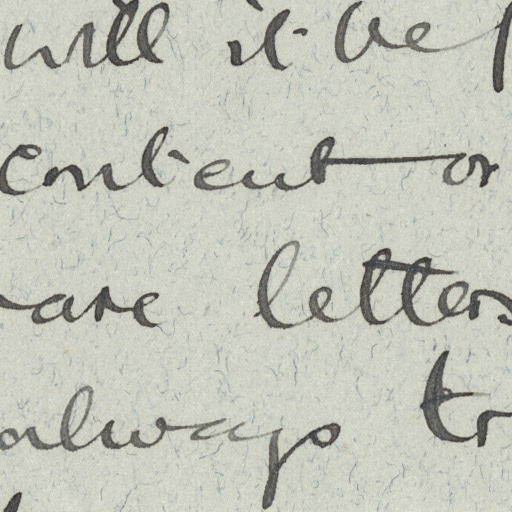 will it be
content or
are letters
always tr